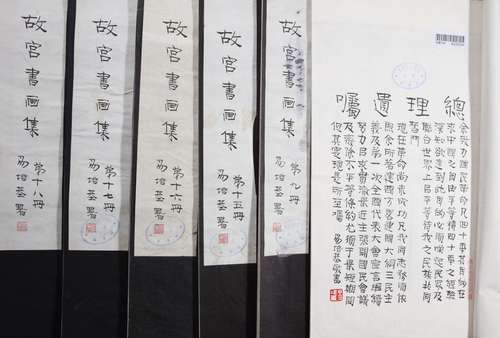 故宮書画集
第十八冊
易培基署
故宮書画集
第十七冊
易培基署
故宮書画集
第十六冊
易培基署
故宮書画集
第十五冊
易培基署
故宮書画集
第九冊
易培基署
總理遺囑
余致力國民革命凡四十年其目的在
求中國之自由平等積四十年之經驗
深知欲達到此目的必須喚起民眾及
聯合世界上以平等待我之民族共同
奮鬥
現在革命尚未成功凡我同志務須依
照余所著建國方畧建國大綱三民主
義及第一次全國代表大會宣言繼續
努力以求貫徹最近主張開國民會議
及廢除不平等條約尤須于最短期間
促其實現是所至囑 易培基敬書